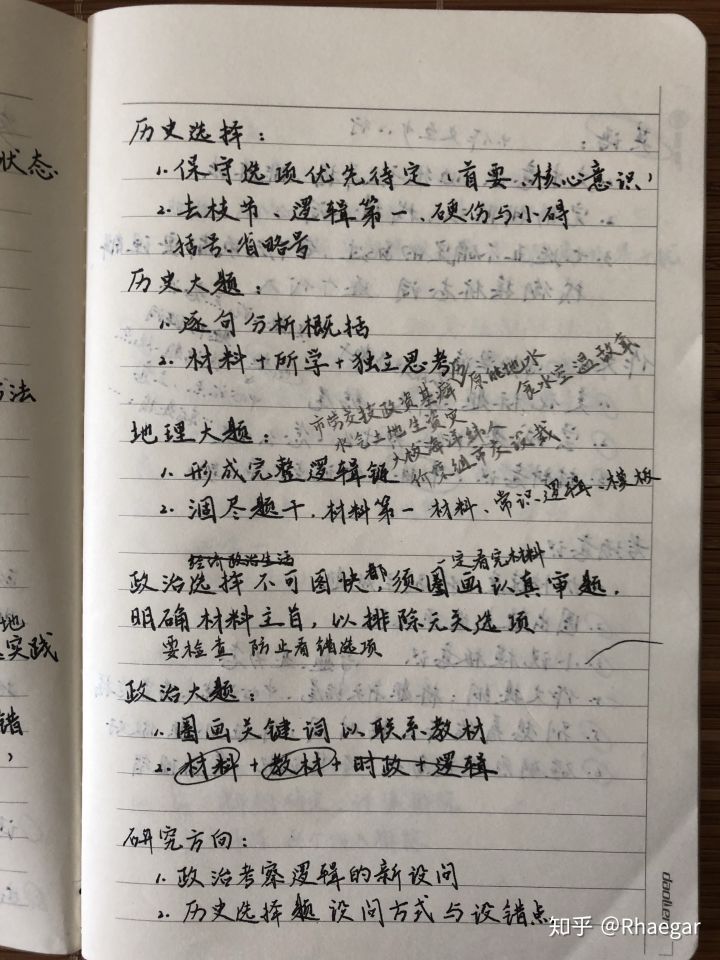 历史选择：
1. 保守选项优先待定（首要、核心意识）
2. 去枝节、逻辑第一、硬伤与小碍
括号、省略号
历史大题：
1. 逐句分析概括
2. 材料+所学+独立思考
历原能地水
市劳交技政资基
水气土地生资史
地理大题：
1. 形成完整逻辑链
2. 涸尽题干，材料第一 材料、常识、逻辑、模板
经济政治生活
一定看完材料
政治选择不可图快，都须圈画认真审题，
明确材料主旨，以排除无关选项
要检查 防止看错选项
政治大题：
1. 圈画关键词以联系教材
2. 材料+教材+时政+逻辑
研究方向：
1. 政治考察逻辑的新设问
2. 历史选择题设问方式与设错点
状态
方法
地
实践
错
知乎 @Rhaegar